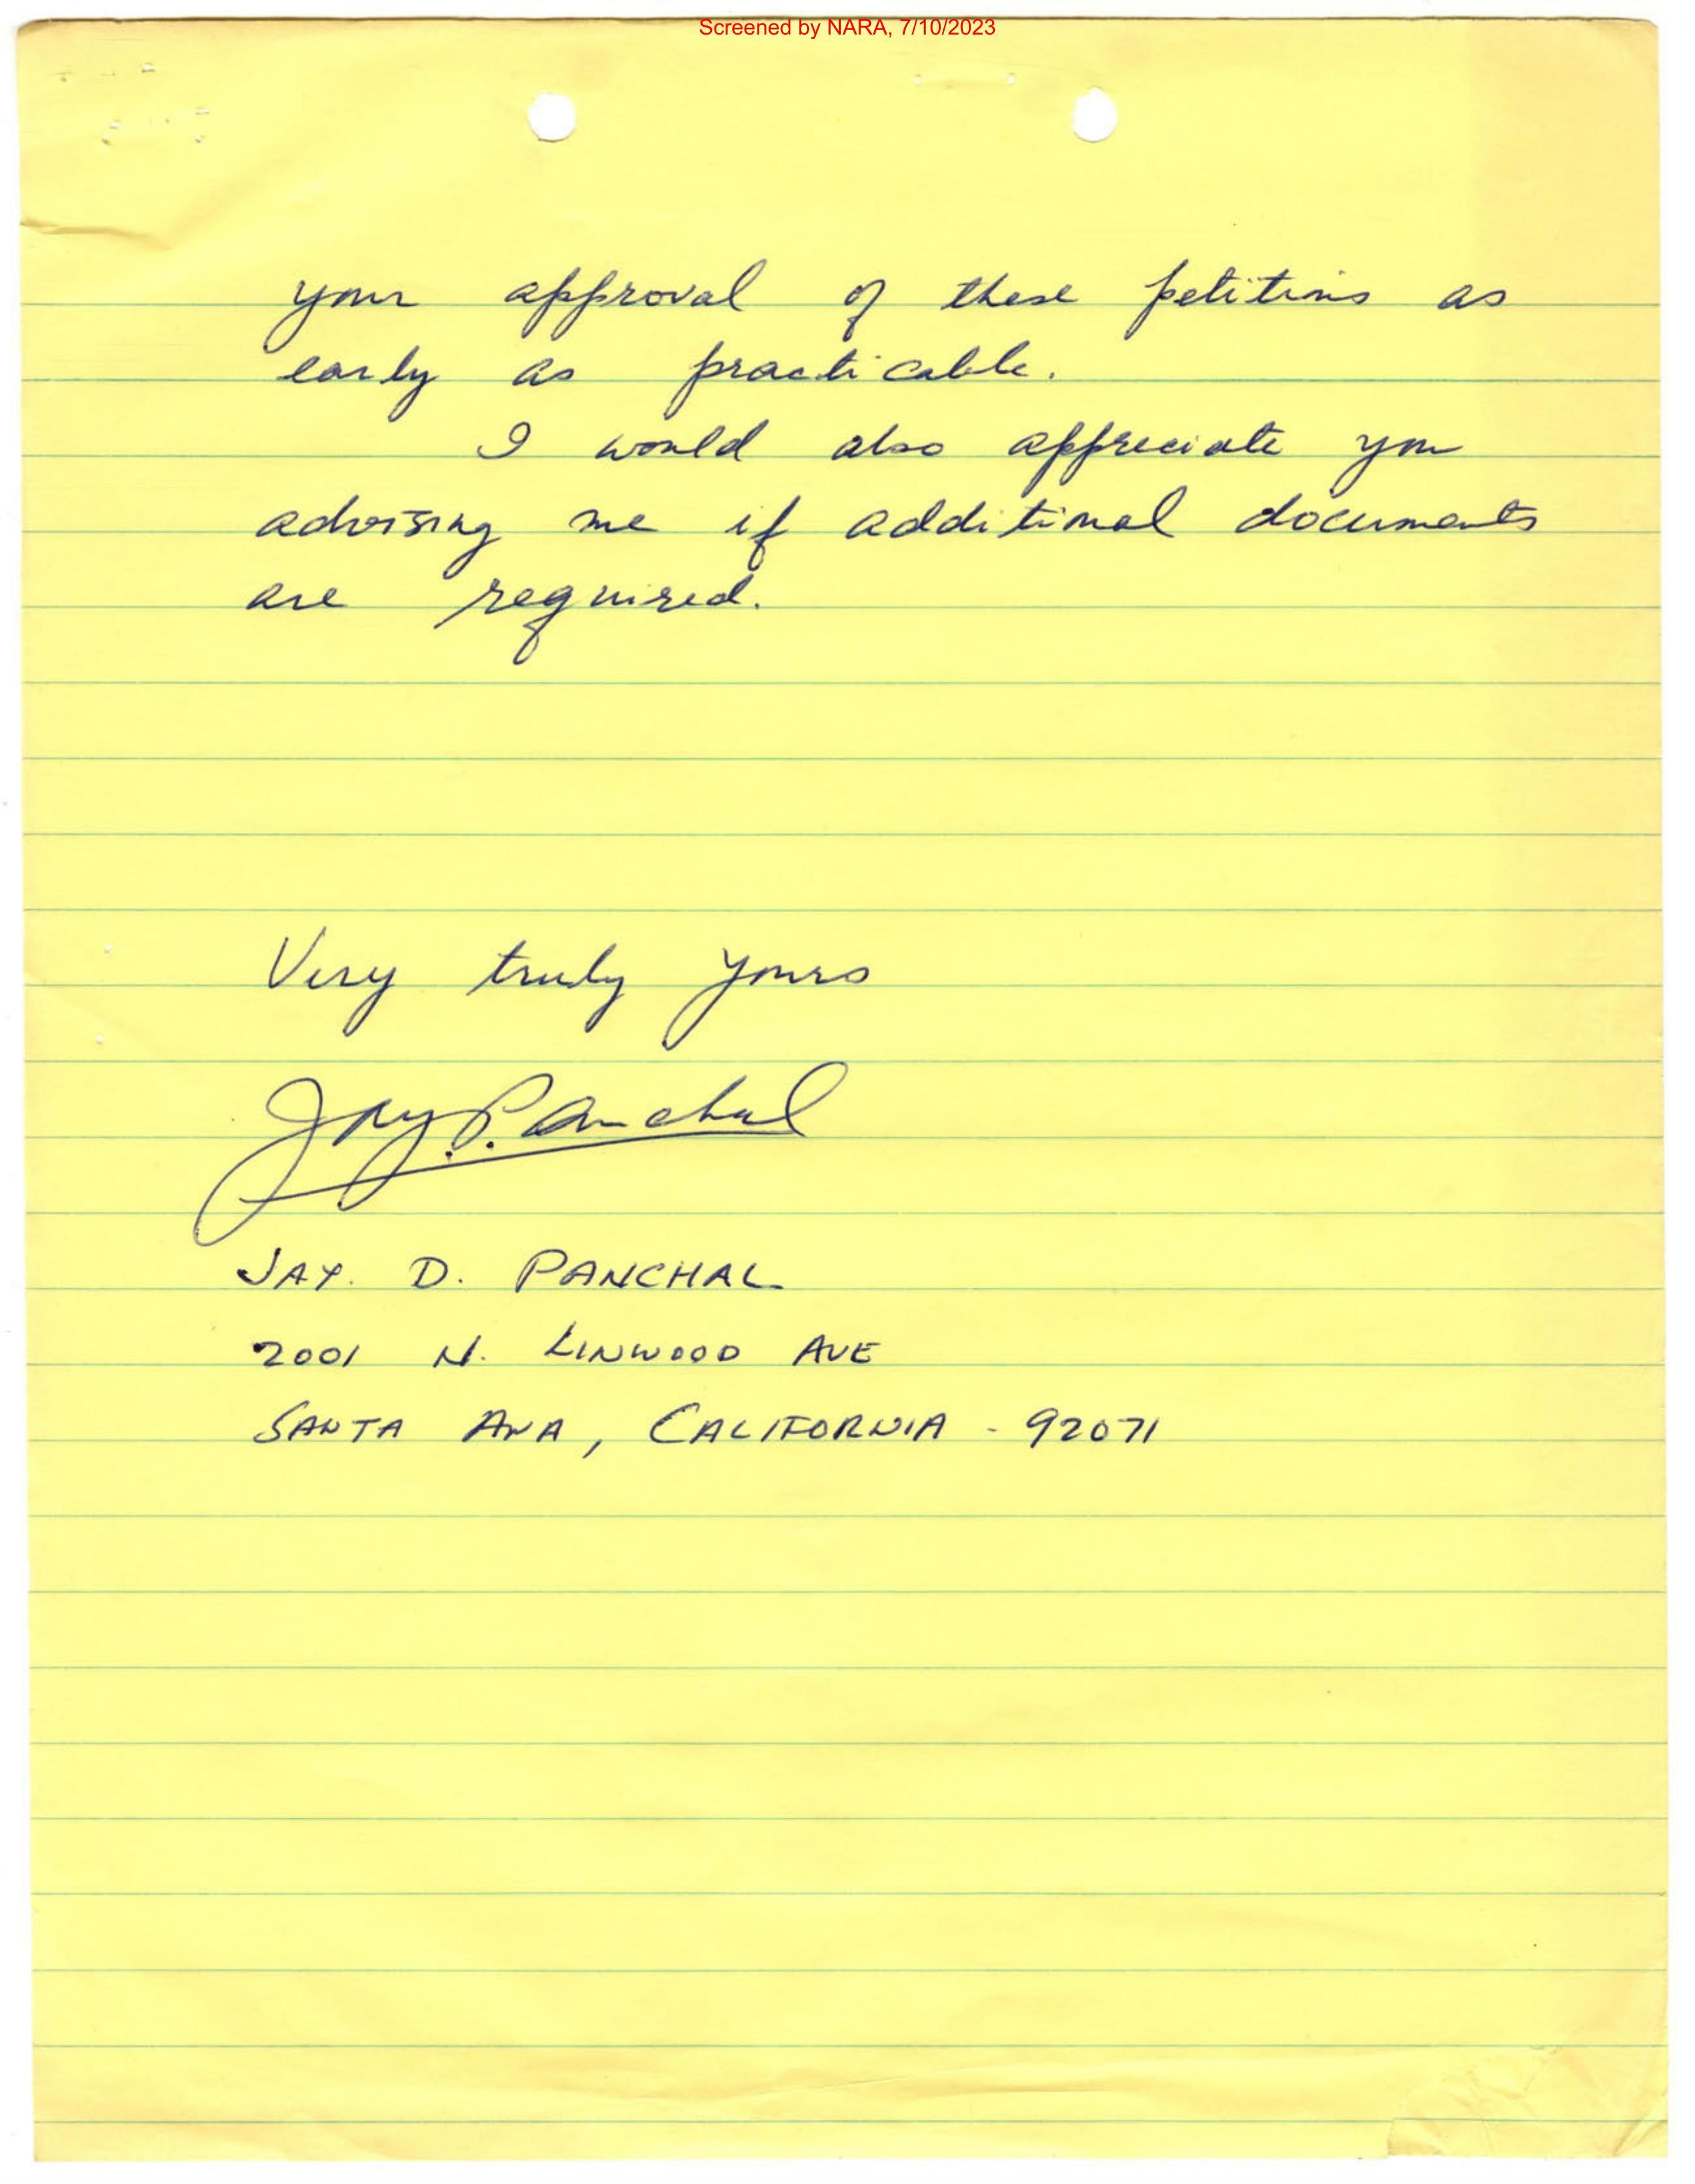 Screened by NARA, 7/10/2023
your approval of these petitions as
early as practicable.
I would also appreciate you
advising me if additional documents
are required.
Very truly yours
Jay D. Panchal
JAY. D. PANCHAL
2001 N. LINWOOD AVE
SANTA ANA, CALIFORNIA - 92071